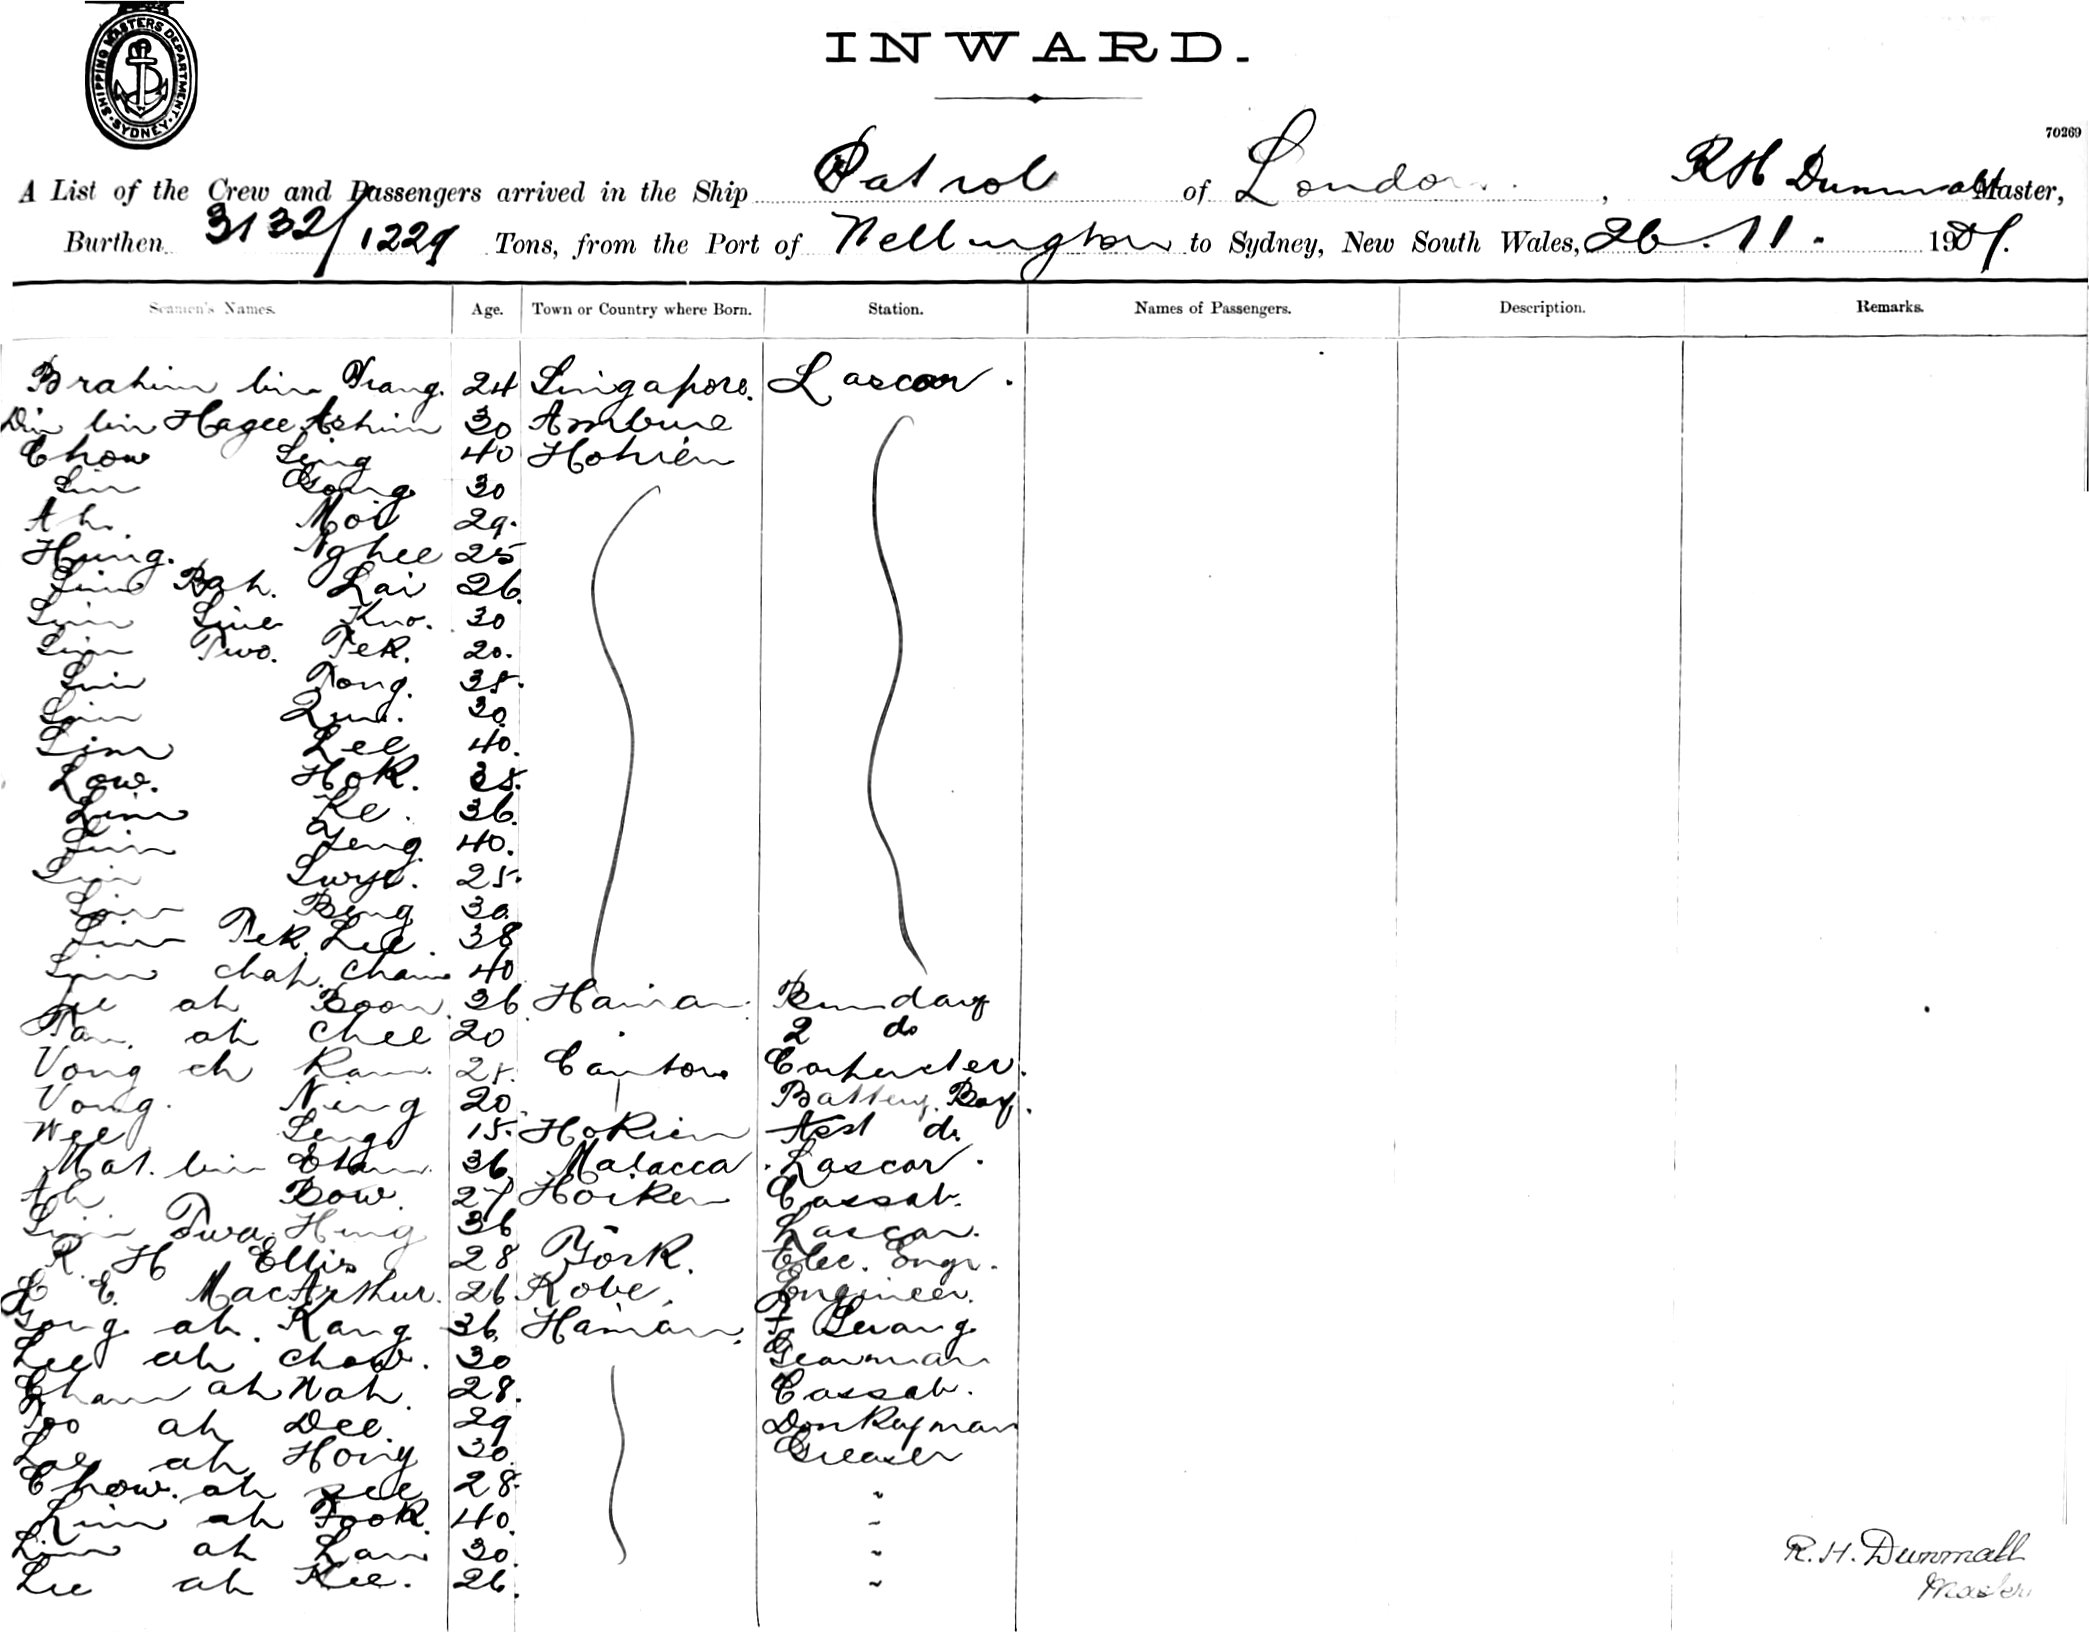 SHIPPING MASTERS DEPARTMENT. SYDNEY.
INWARD.
70269
A List of the Crew and Passengers arrived in the Ship Patrol of London, R H Dunmall Master,
Burthen 3132/1229 Tons, from the Port of Wellington to Sydney, New South Wales, 26.11.
Seamen's Names. Age. Town or Country where Born. Station. Names of Passengers. Description. Remarks.
Brahim bin 24 Singapore. Lascar.
Din bin Hagee 30
Chow Sing 40 Hokien
Lim 30
Ah. Moi 29.
Nghee 25
Lim Bah. Lai 26.
Lim 30
Lim Two. Tek. 20.
Lim Tong. 35.
Lim 30
Lim Lee 40.
Low. Hok. 35.
Lim Ke. 36.
Lim 40.
Lim 25.
Lim Beng 30.
Lim Tek. Lee. 38
Lim chah. 40
ah Boon. 36 Hainan.
Tan. ah Chee 20 2 do
Vong ah Kam. 25. Canton Carpenter.
Vong. Ning 20. Battery. Boy.
Wee Seng 15. Hokien Asst do.
Mat. bin 36 Malacca. Lascar.
Ah Bow. 27 Hoiken Cassab.
Lim Twa. Heng 36 Lascar.
R. H Ellis 28 York. Elec. Engr.
E. MacArthur. 26 Kobe. Engineer.
ah. Kang 36. Hainan.
Lee ah chow. 30
ah Wah. 28. Cassab.
ah Dee. 29 Donkeyman
ah Hong 30. Greaser
Chow. ah 28. "
Lim ah Fook. 40. "
Lim ah Lam 30. "
Lee ah Kee. 26. "
R. H. Dunmall
Master